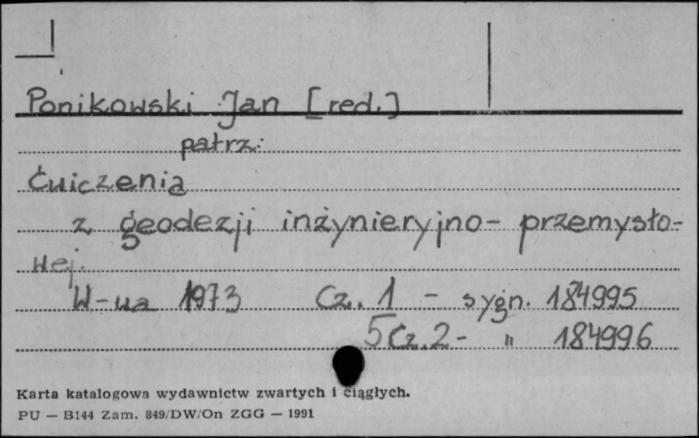 Ponikowski Jan [red.]
patrz:
Ćwiczenia
z geodezji inżynieryjno- przemysło-
wej.
W-wa 1973 Cz. 1 - sygn. 184995
5 Cz. 2 - " 184996
Karta katalogowa wydawnictw zwartych i ciągłych.
PU — B144 Zam. 849/DW/On ZGG — 1991